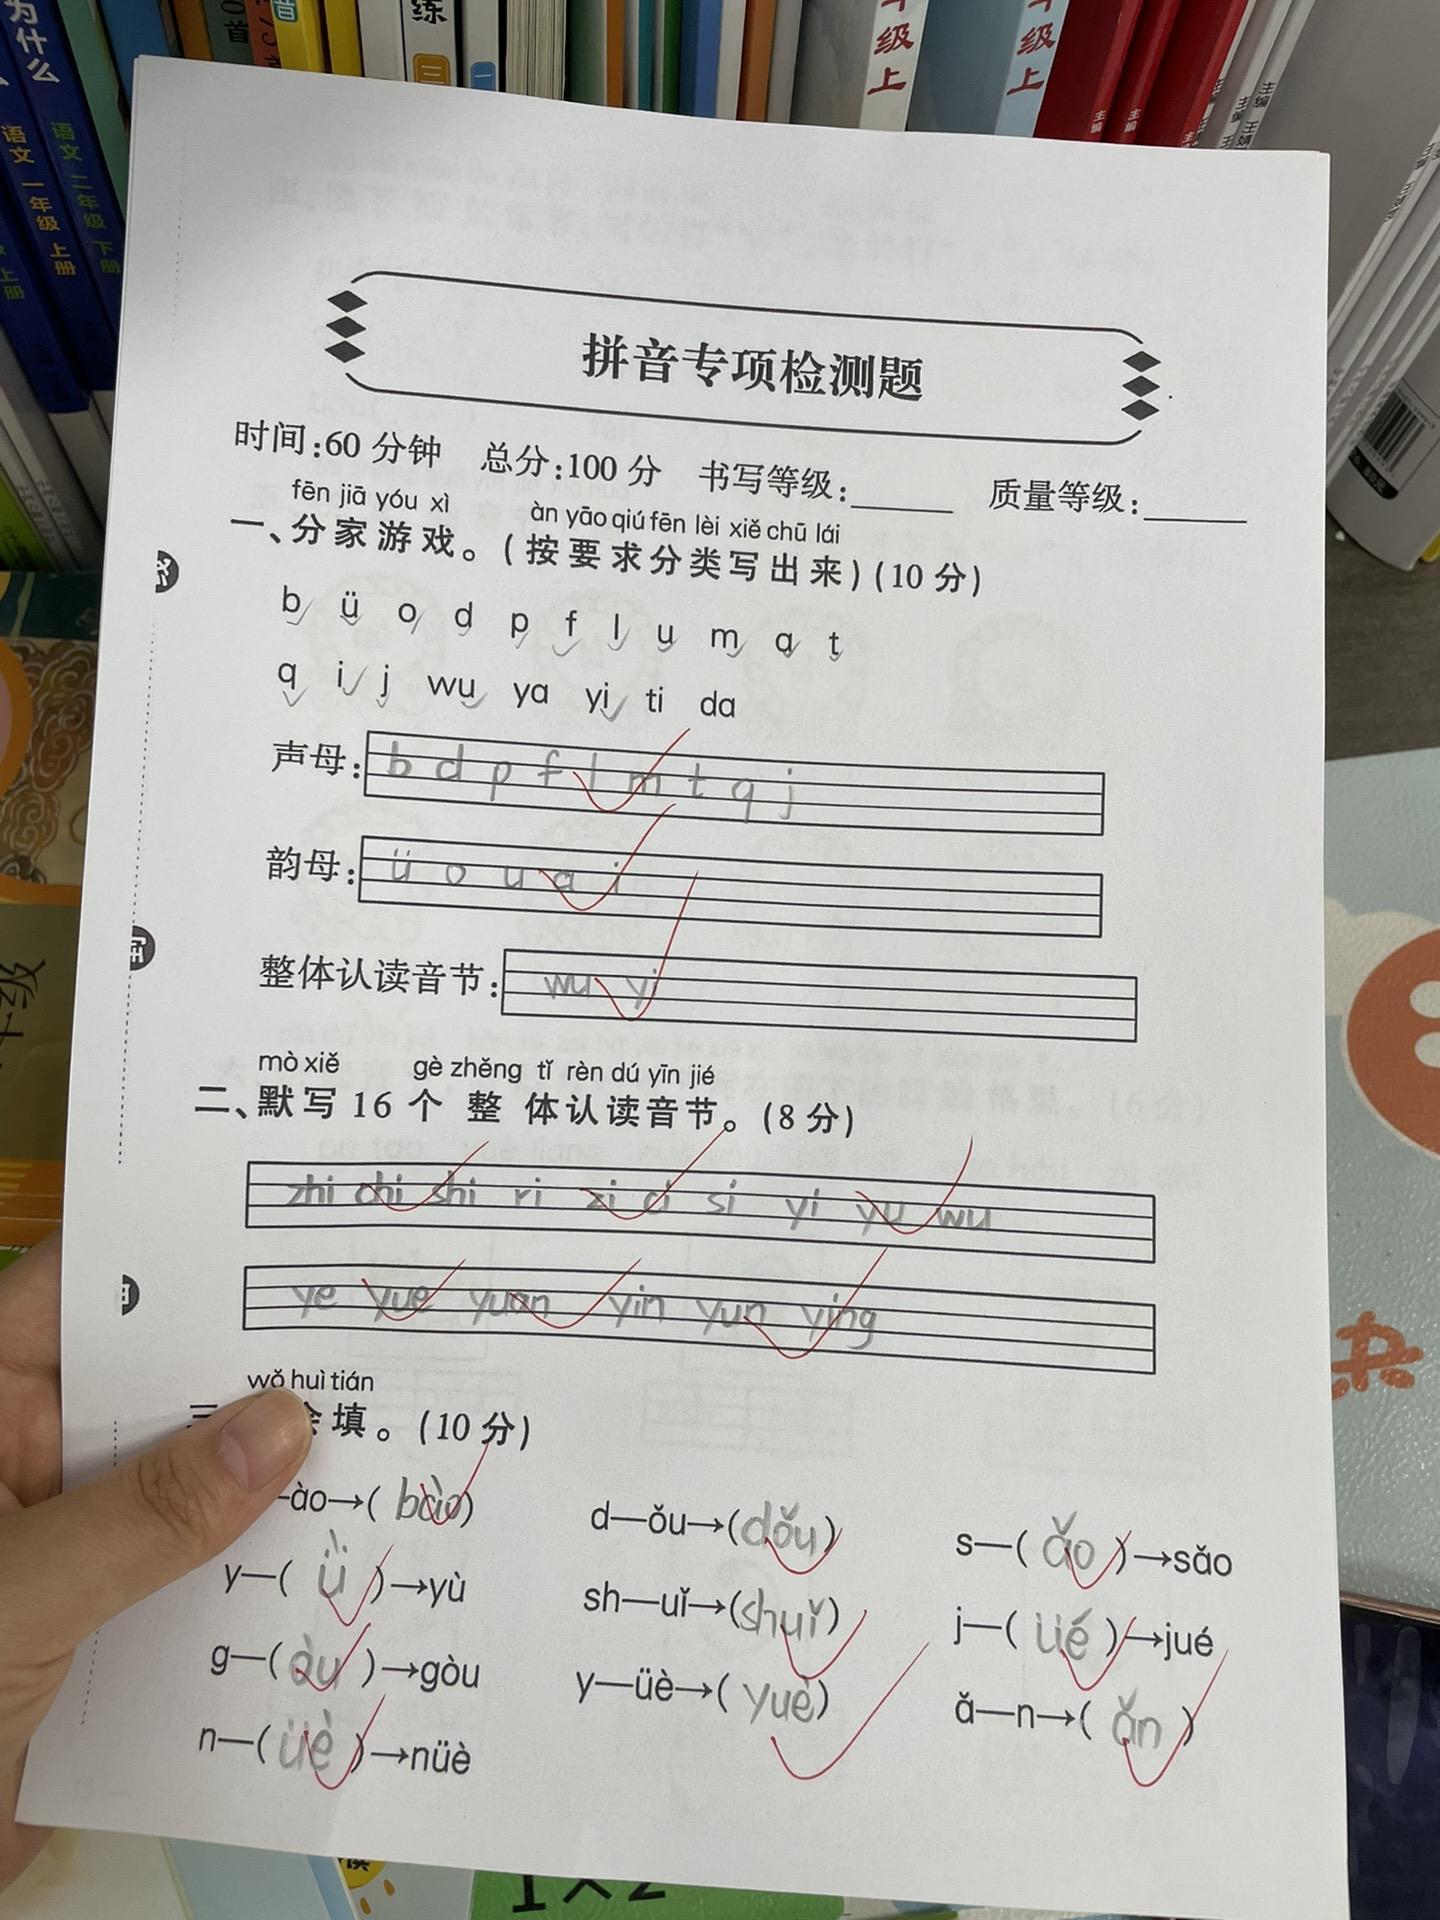 为什么
语文 一年级 上册
语文 二年级 下册
上册
练
三
一
音
年级上
年级上
主编
主编
主编
主编
拼音专项检测题
时间:60 分钟 总分:100 分 书写等级:______ 质量等级:______
fēn jiā yóu xì àn yāo qiú fēn lèi xiě chū lái
一、分家游戏。(按要求分类写出来)(10 分)
b ü o d p f l u m a t
q i j wu ya yi ti da
声母: b d p f l m t q j
韵母: ü o u a i
整体认读音节: wu yi
mò xiě gè zhěng tǐ rèn dú yīn jié
二、默写 16 个 整 体认读音节。(8 分)
zhi chi shi ri zi ci si yi yu wu
ye yue yuan yin yun ying
wǒ huì tián
三 会填。(10 分)
—ào→( bào) d—ǒu→(dǒu) s—( ǎo )→sǎo
y—( ǜ )→yù sh—uǐ→(shuǐ) j—( üé )→jué
g—( òu )→gòu y—üè→( yuè) ǎ—n→( ǎn )
n—( üè )→nüè